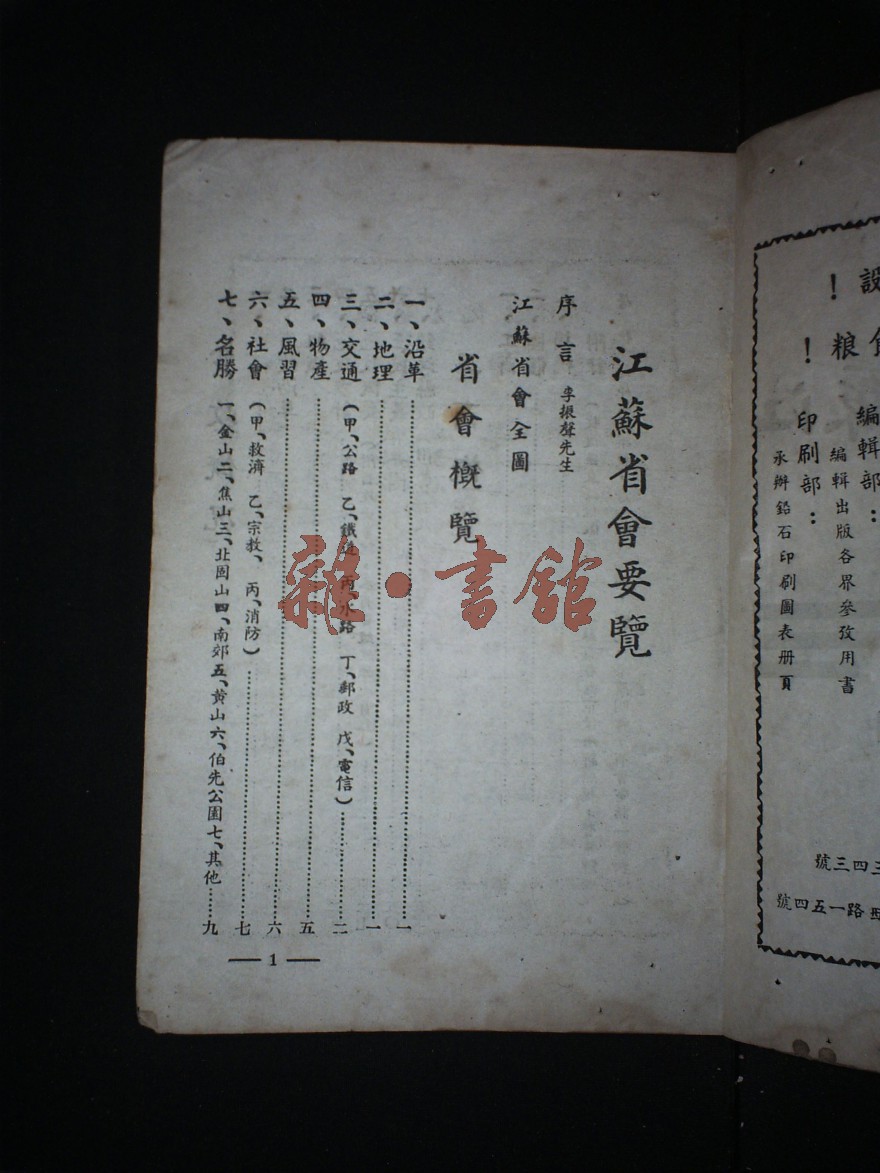 設
食
粮
！
！
編輯部：
編輯出版各界參攷用書
印刷部：
承辦鉛石印刷圖表册頁
三四三號
西路一五四號
江蘇省會要覽
序言 李振聲先生
江蘇省會全圖
省會概覽
一、沿革……一
二、地理……一
三、交通（甲、公路 乙、鐵道 丙、水路 丁、郵政 戊、電信）……二
四、物產……五
五、風習……六
六、社會（甲、救濟 乙、宗教、丙、消防）……七
七、名勝 一、金山二、焦山三、北固山四、南郊五、黃山六、伯先公園七、其他……九
— 1 —
雜·書館